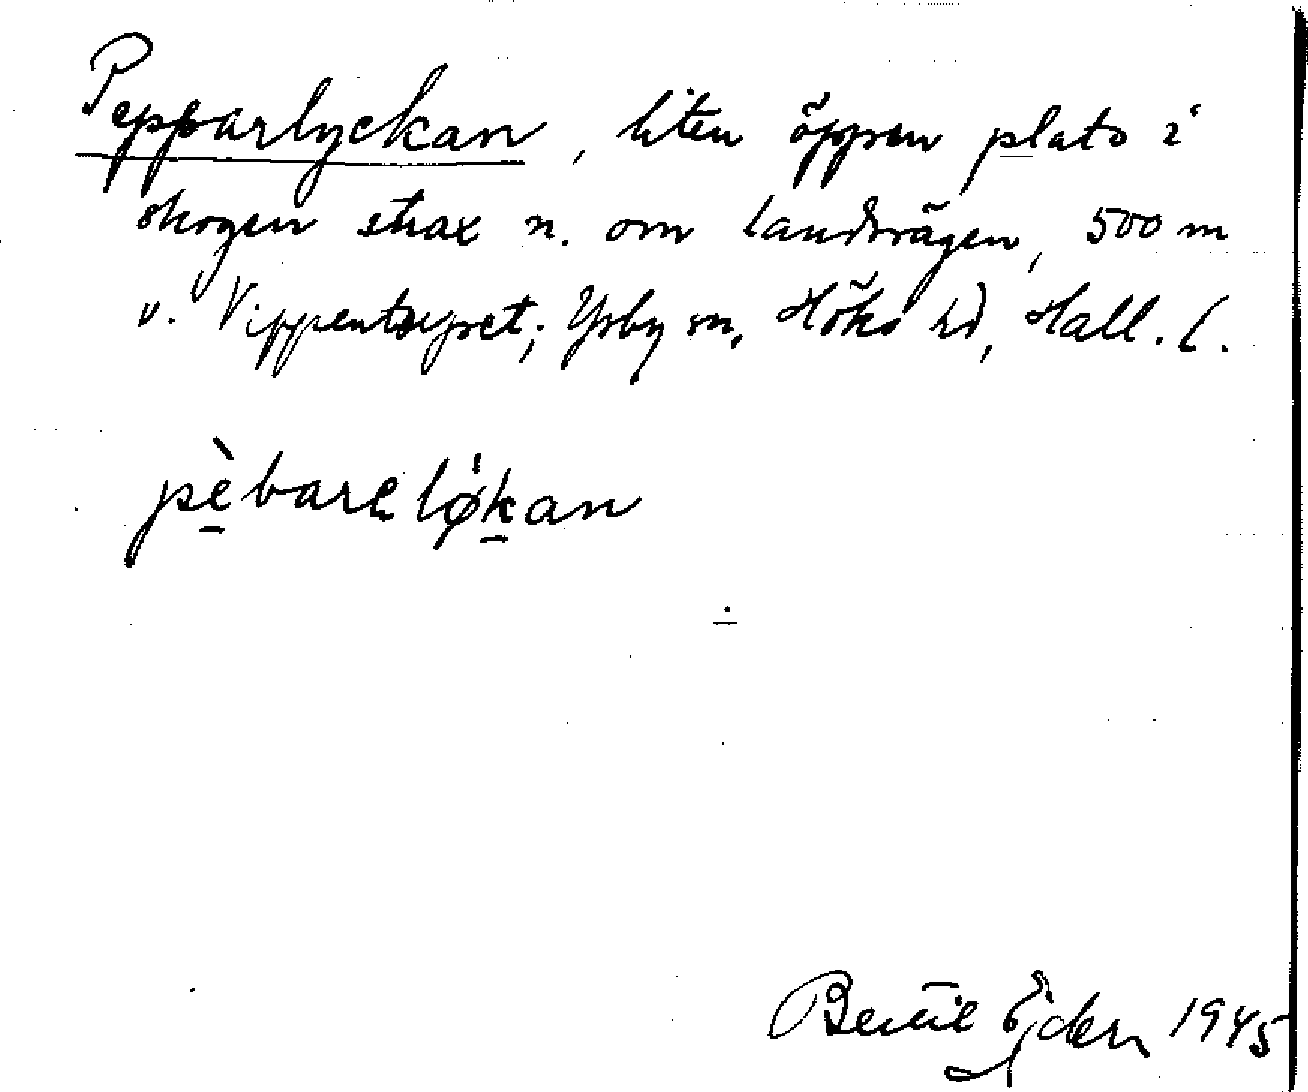 Pepparlyckan, liten öppen plats i
skogen strax n. om landsvägen, 500 m
v. Vippentorpet; Ysby sn, Höks hd, Hall. l.
pèbarelø̍kan
Bertil Ejder 1945